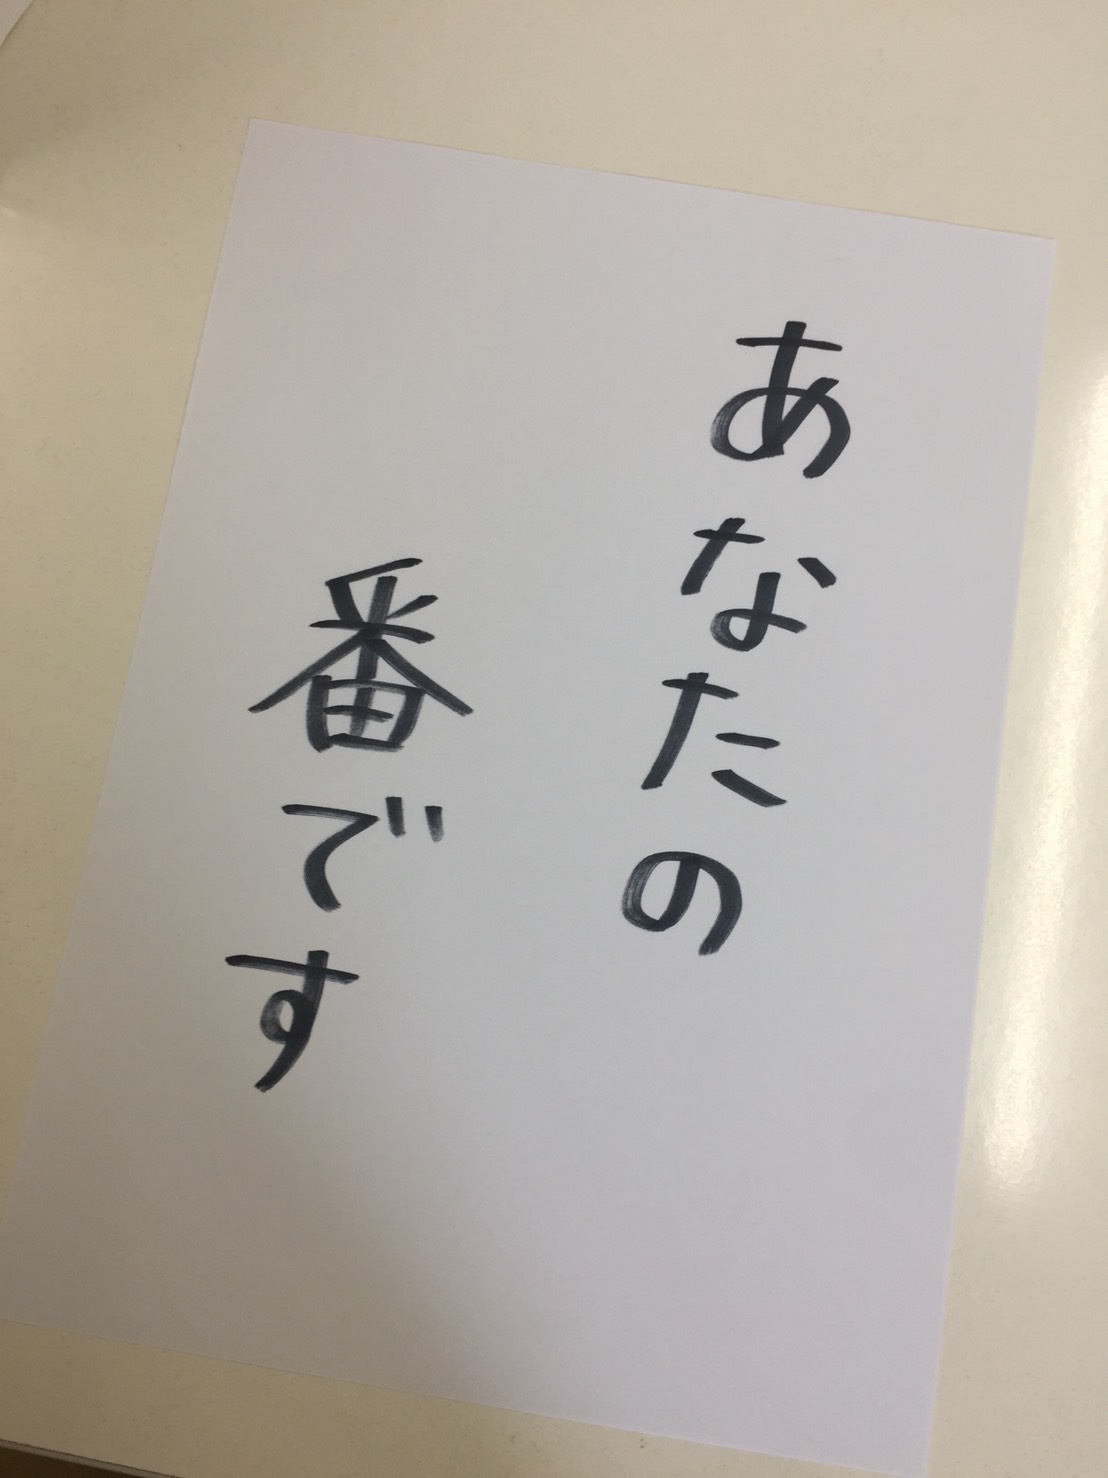 あなたの
番です